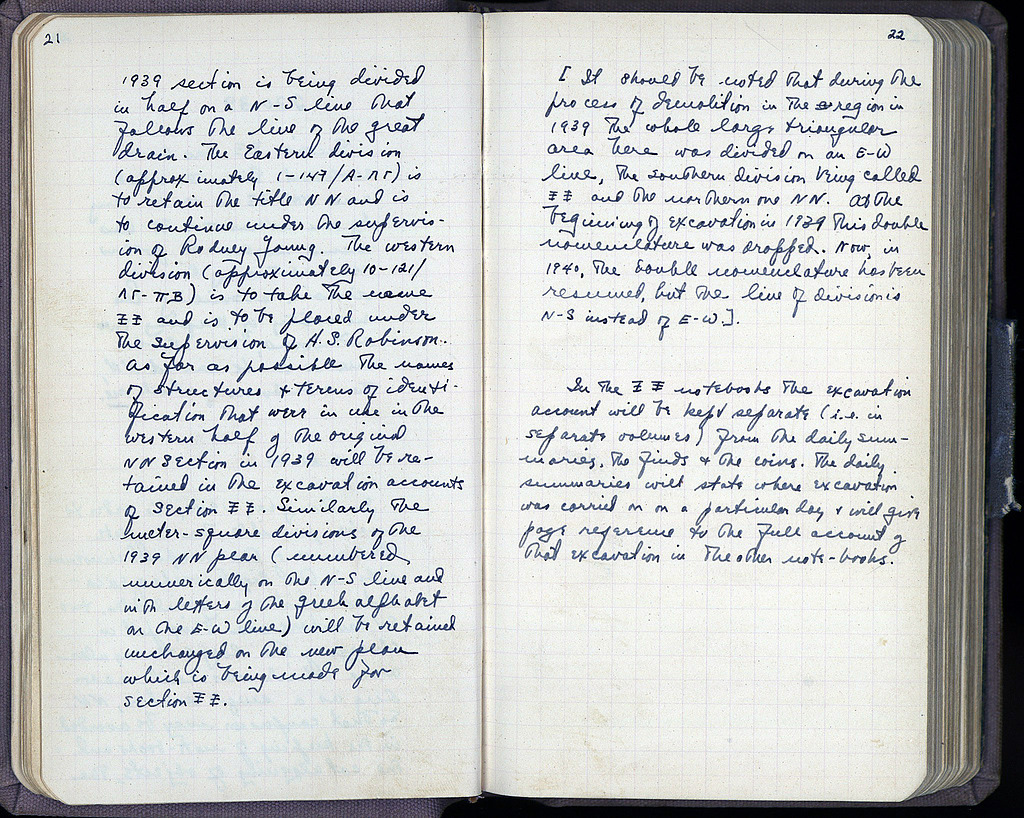 21
1939 section is being divided
in half on a N-S line that
follows the line of the great
drain. The Eastern division
(approximately 1-147/Α-ΛΓ) is
to retain the title NN and is
to continue under the supervis-
ion of Rodney Young. The western
division (approximately 10-121/
ΛΓ-ΠΒ) is to take the name
ΞΞ and is to be placed under
the supervision of H.S. Robinson.
As far as possible the names
of structures & terms of identi-
fication that were in use in the
western half of the original
NN Section in 1939 will be re-
tained in the excavation accounts
of Section ΞΞ. Similarly the
meter-square divisions of the
1939 NN plan (numbered
numerically on the N-S line and
with letters of the greek alphabet
on the E-W line) will be retained
unchanged on the new plan
which is being made for
Section ΞΞ.
22
[ It should be noted that during the
process of demolition in the region in
1939 the whole large triangular
area here was divided on an E-W
line, the southern division being called
ΞΞ and the northern one NN. At the
beginning of excavation in 1939 this double
nomenclature was dropped. Now, in
1940, the double nomenclature has been
resumed, but the line of division is
N-S instead of E-W.].
In the ΞΞ notebooks the excavation
account will be kept separate (i.e. in
separate volumes) from the daily sum-
maries, the finds & the coins. The daily
summaries will state where excavation
was carried on on a particular day & will give
page reference to the full account of
that excavation in the other note-books.